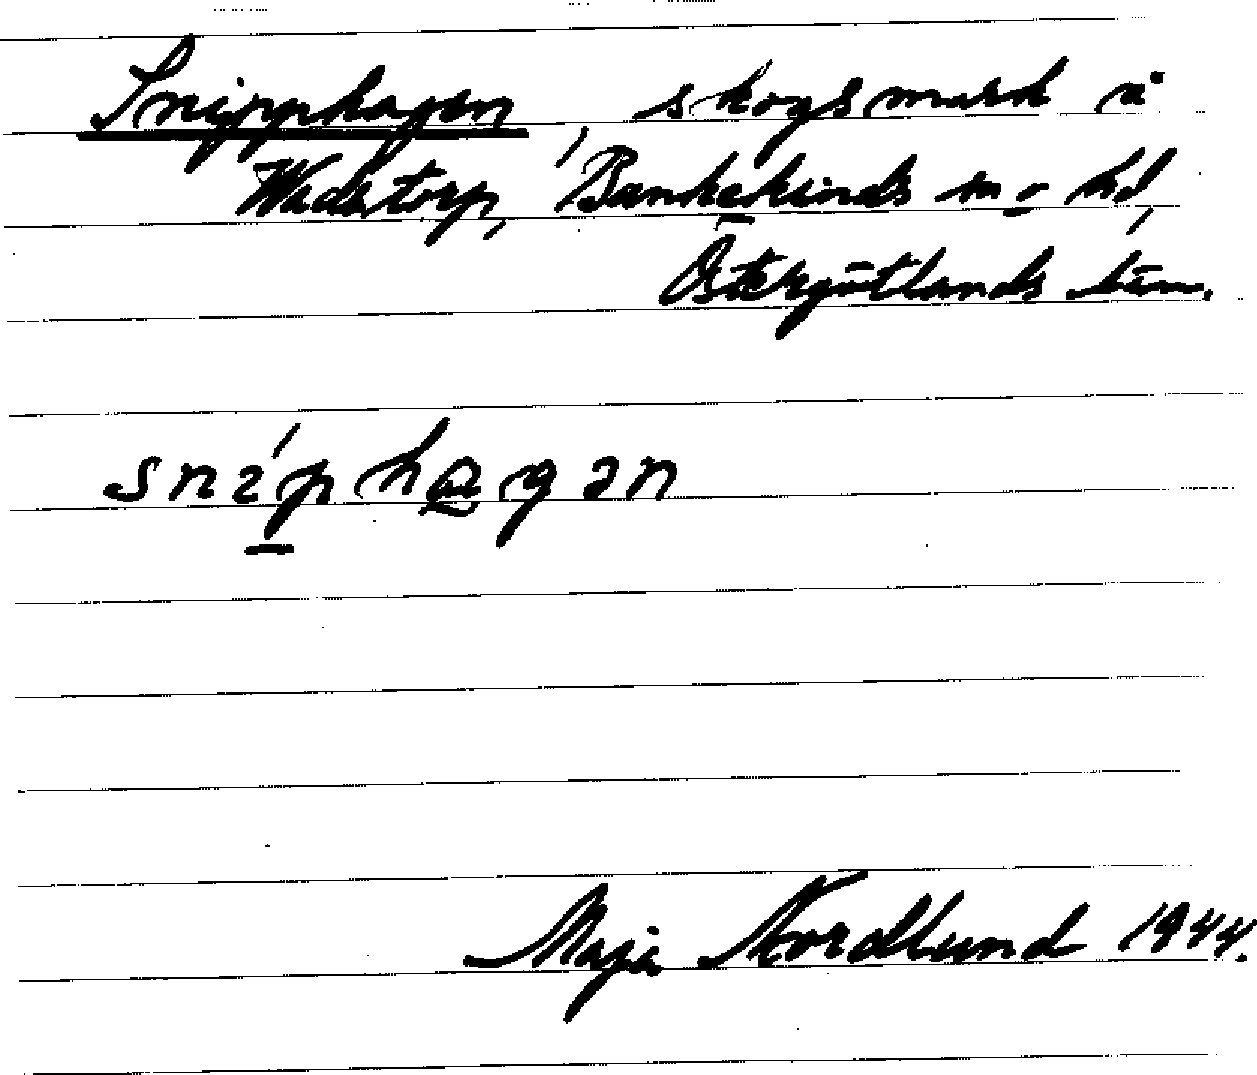 Snipphagen, skogsmark å
Wadstorp, Bankekinds sn o hd,
Östergötlands län.
sníphagən
Maja Nordlund 1944.